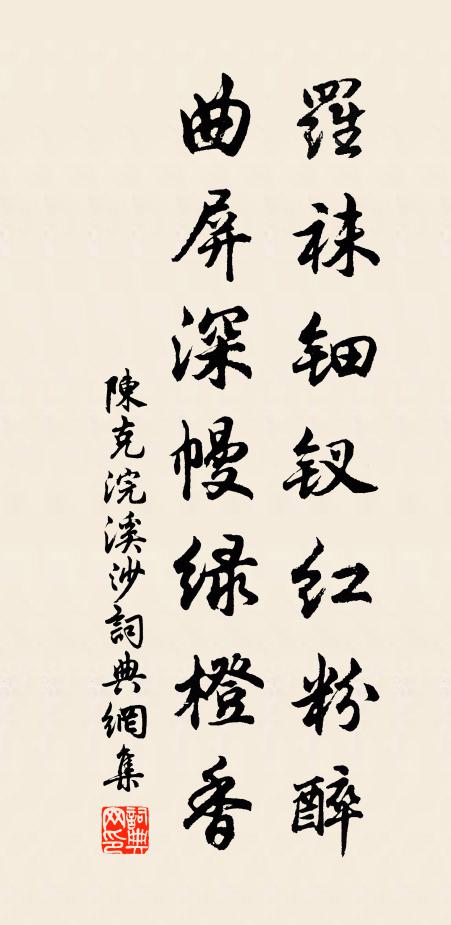 羅袜钿钗红粉醉
曲屏深幔绿橙香
陳克浣溪沙詞典網集
詞典网印